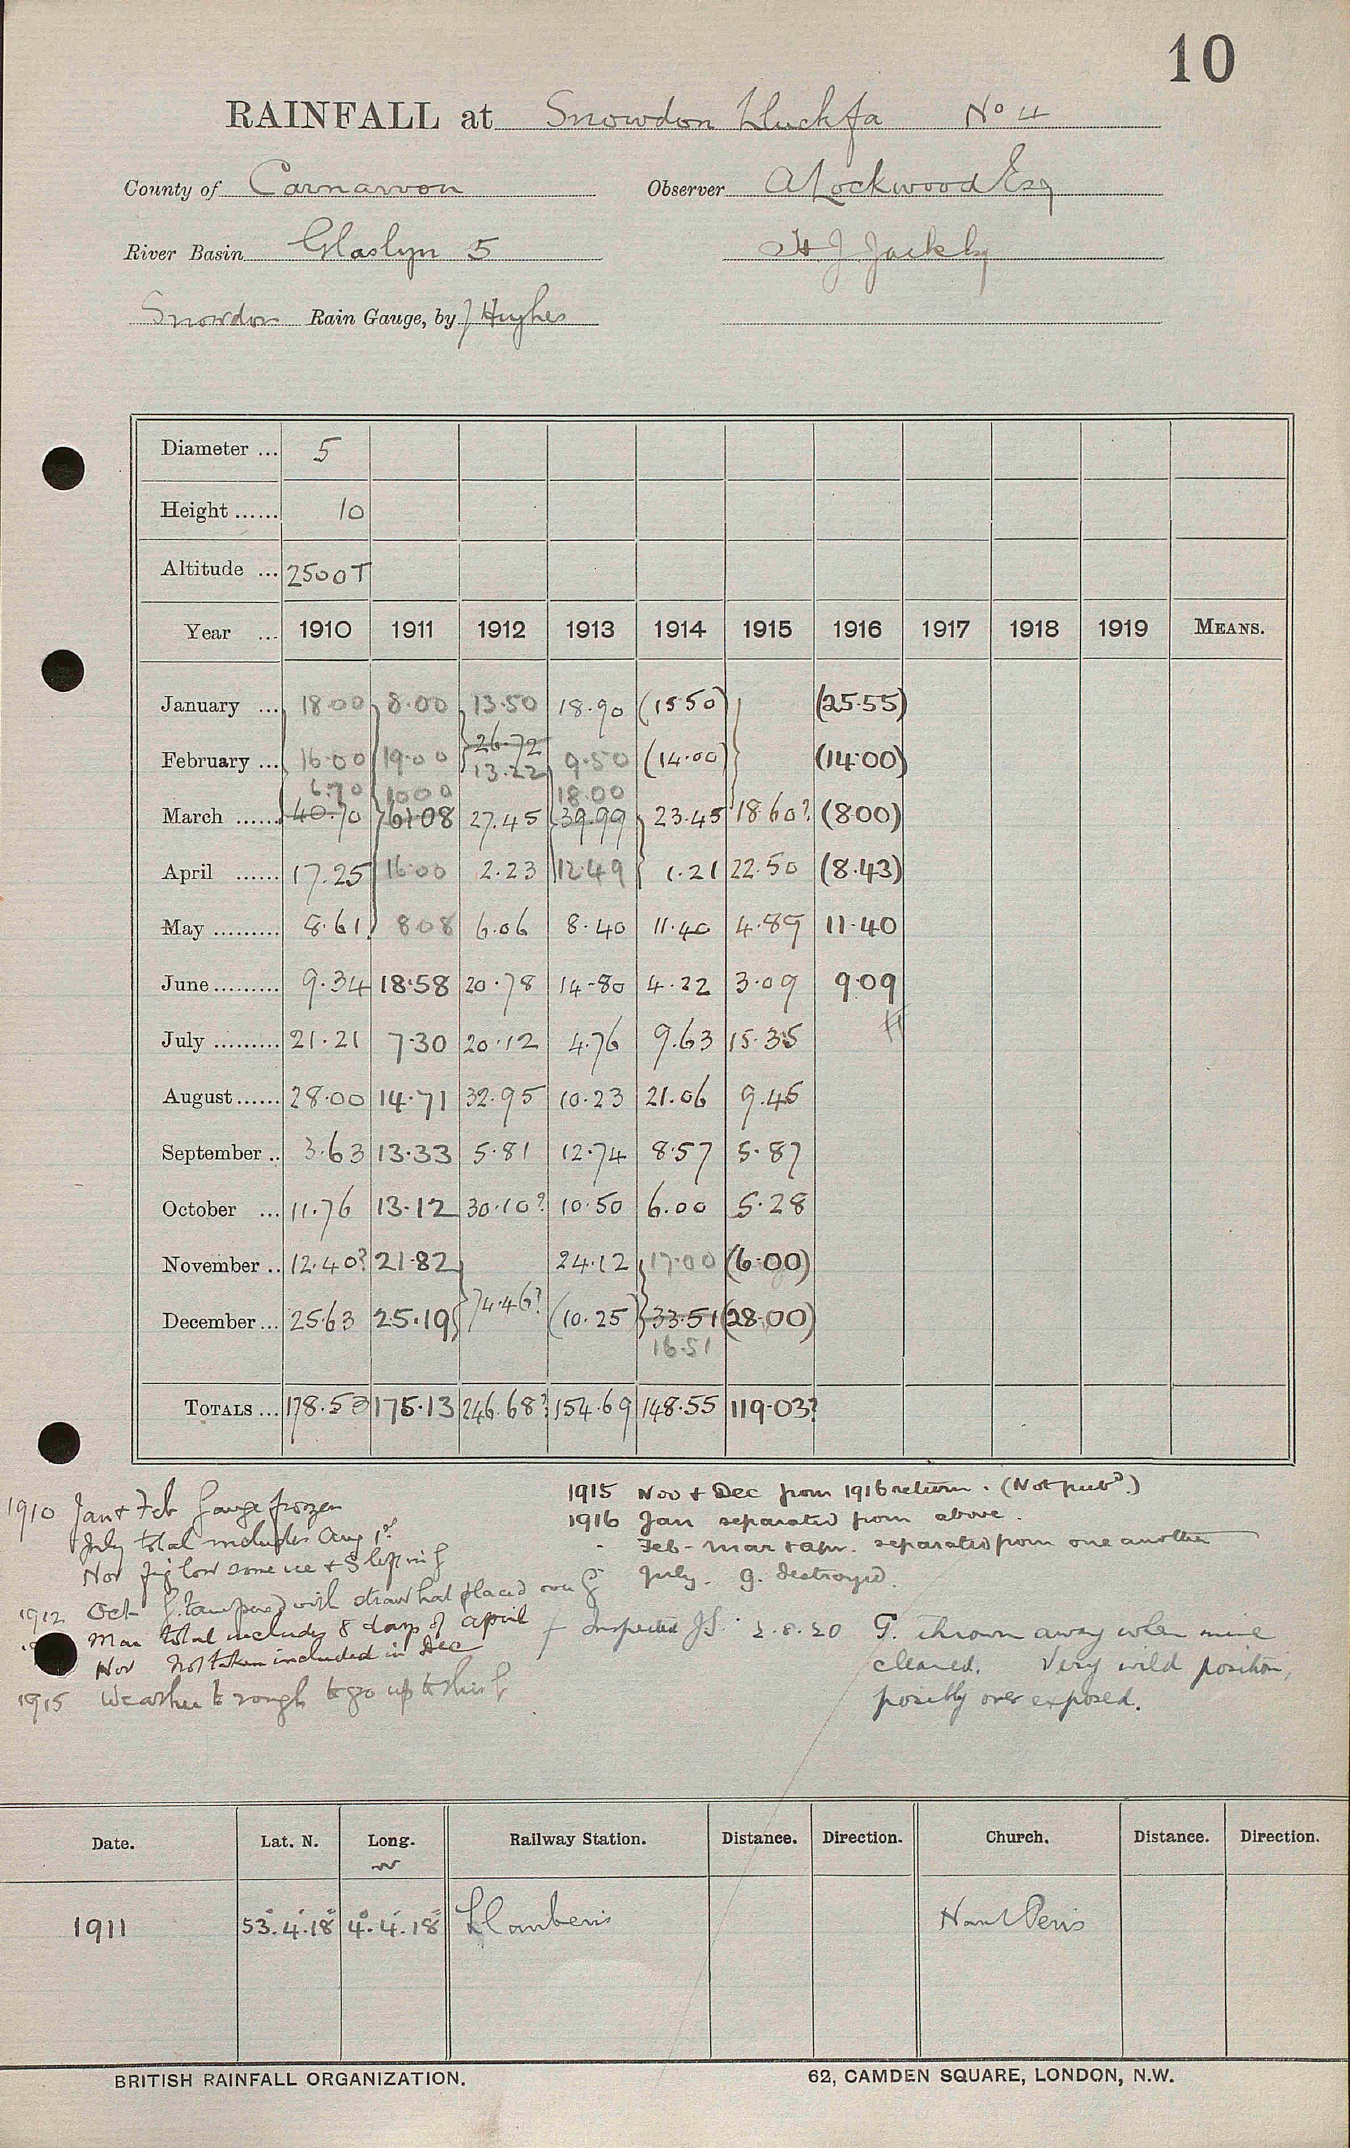 10
RAINFALL at Snowdon Lluckfa No 4
County of Carnarvon Observer A Lockwood Esq
River Basin Glaslyn 5 H J Jack Esq
Snowdon Rain Gauge, by J Hughes
Diameter ... 5
Height ...... 10
Altitude ... 2500T
Year ... 1910 1911 1912 1913 1914 1915 1916 1917 1918 1919 MEANS.
January ... 18.00 8.00 13.50 18.90 (15.50) (25.55)
26.72
February ... 16.00 19.00 13.22 9.50 (14.00) (14.00)
6.70 10.00 18.00
March ...... 40.70 61.08 27.45 39.99 23.45 18.60? (8.00)
April ...... 17.25 16.00 2.23 12.49 1.21 22.50 (8.43)
May ......... 8.61 8.08 6.06 8.40 11.40 4.89 11.40
June ......... 9.34 18.58 20.78 14.80 4.22 3.09 9.09
July ......... 21.21 7.30 20.12 4.76 9.63 15.35
August ...... 28.00 14.71 32.95 10.23 21.06 9.45
September .. 3.63 13.33 5.81 12.74 8.57 5.87
October ... 11.76 13.12 30.10? 10.50 6.00 5.28
November .. 12.40? 21.82 24.12 17.00 (6.00)
December ... 25.63 25.19 74.46? (10.25) 33.51 (28.00)
16.51
TOTALS ... 178.53 175.13 246.68? 154.69 148.55 119.03?
1910 Jan + Feb Gauge frozen
July total includes Aug 1st
Nov fig low some ice + S left in g
1912 Oct G. tampered with straw hat placed over g
Mar total includes 8 days of April
Nov Not taken included in Dec
1915 Weather too rough to go up to this g
1915 Nov + Dec from 1916 return. (Not pubd.)
1916 Jan separated from above.
" Feb - Mar + Apr. separated from one another
July. G. destroyed.
Inspected J.S. 2.8.20 G. thrown away when mine
cleared. Very wild position,
possibly over exposed.
Date. Lat. N. Long. W Railway Station. Distance. Direction. Church. Distance. Direction.
1911 53°.4'.18" 4°.4'.18" Llanberis Nant Peris
BRITISH RAINFALL ORGANIZATION. 62, CAMDEN SQUARE, LONDON, N.W.